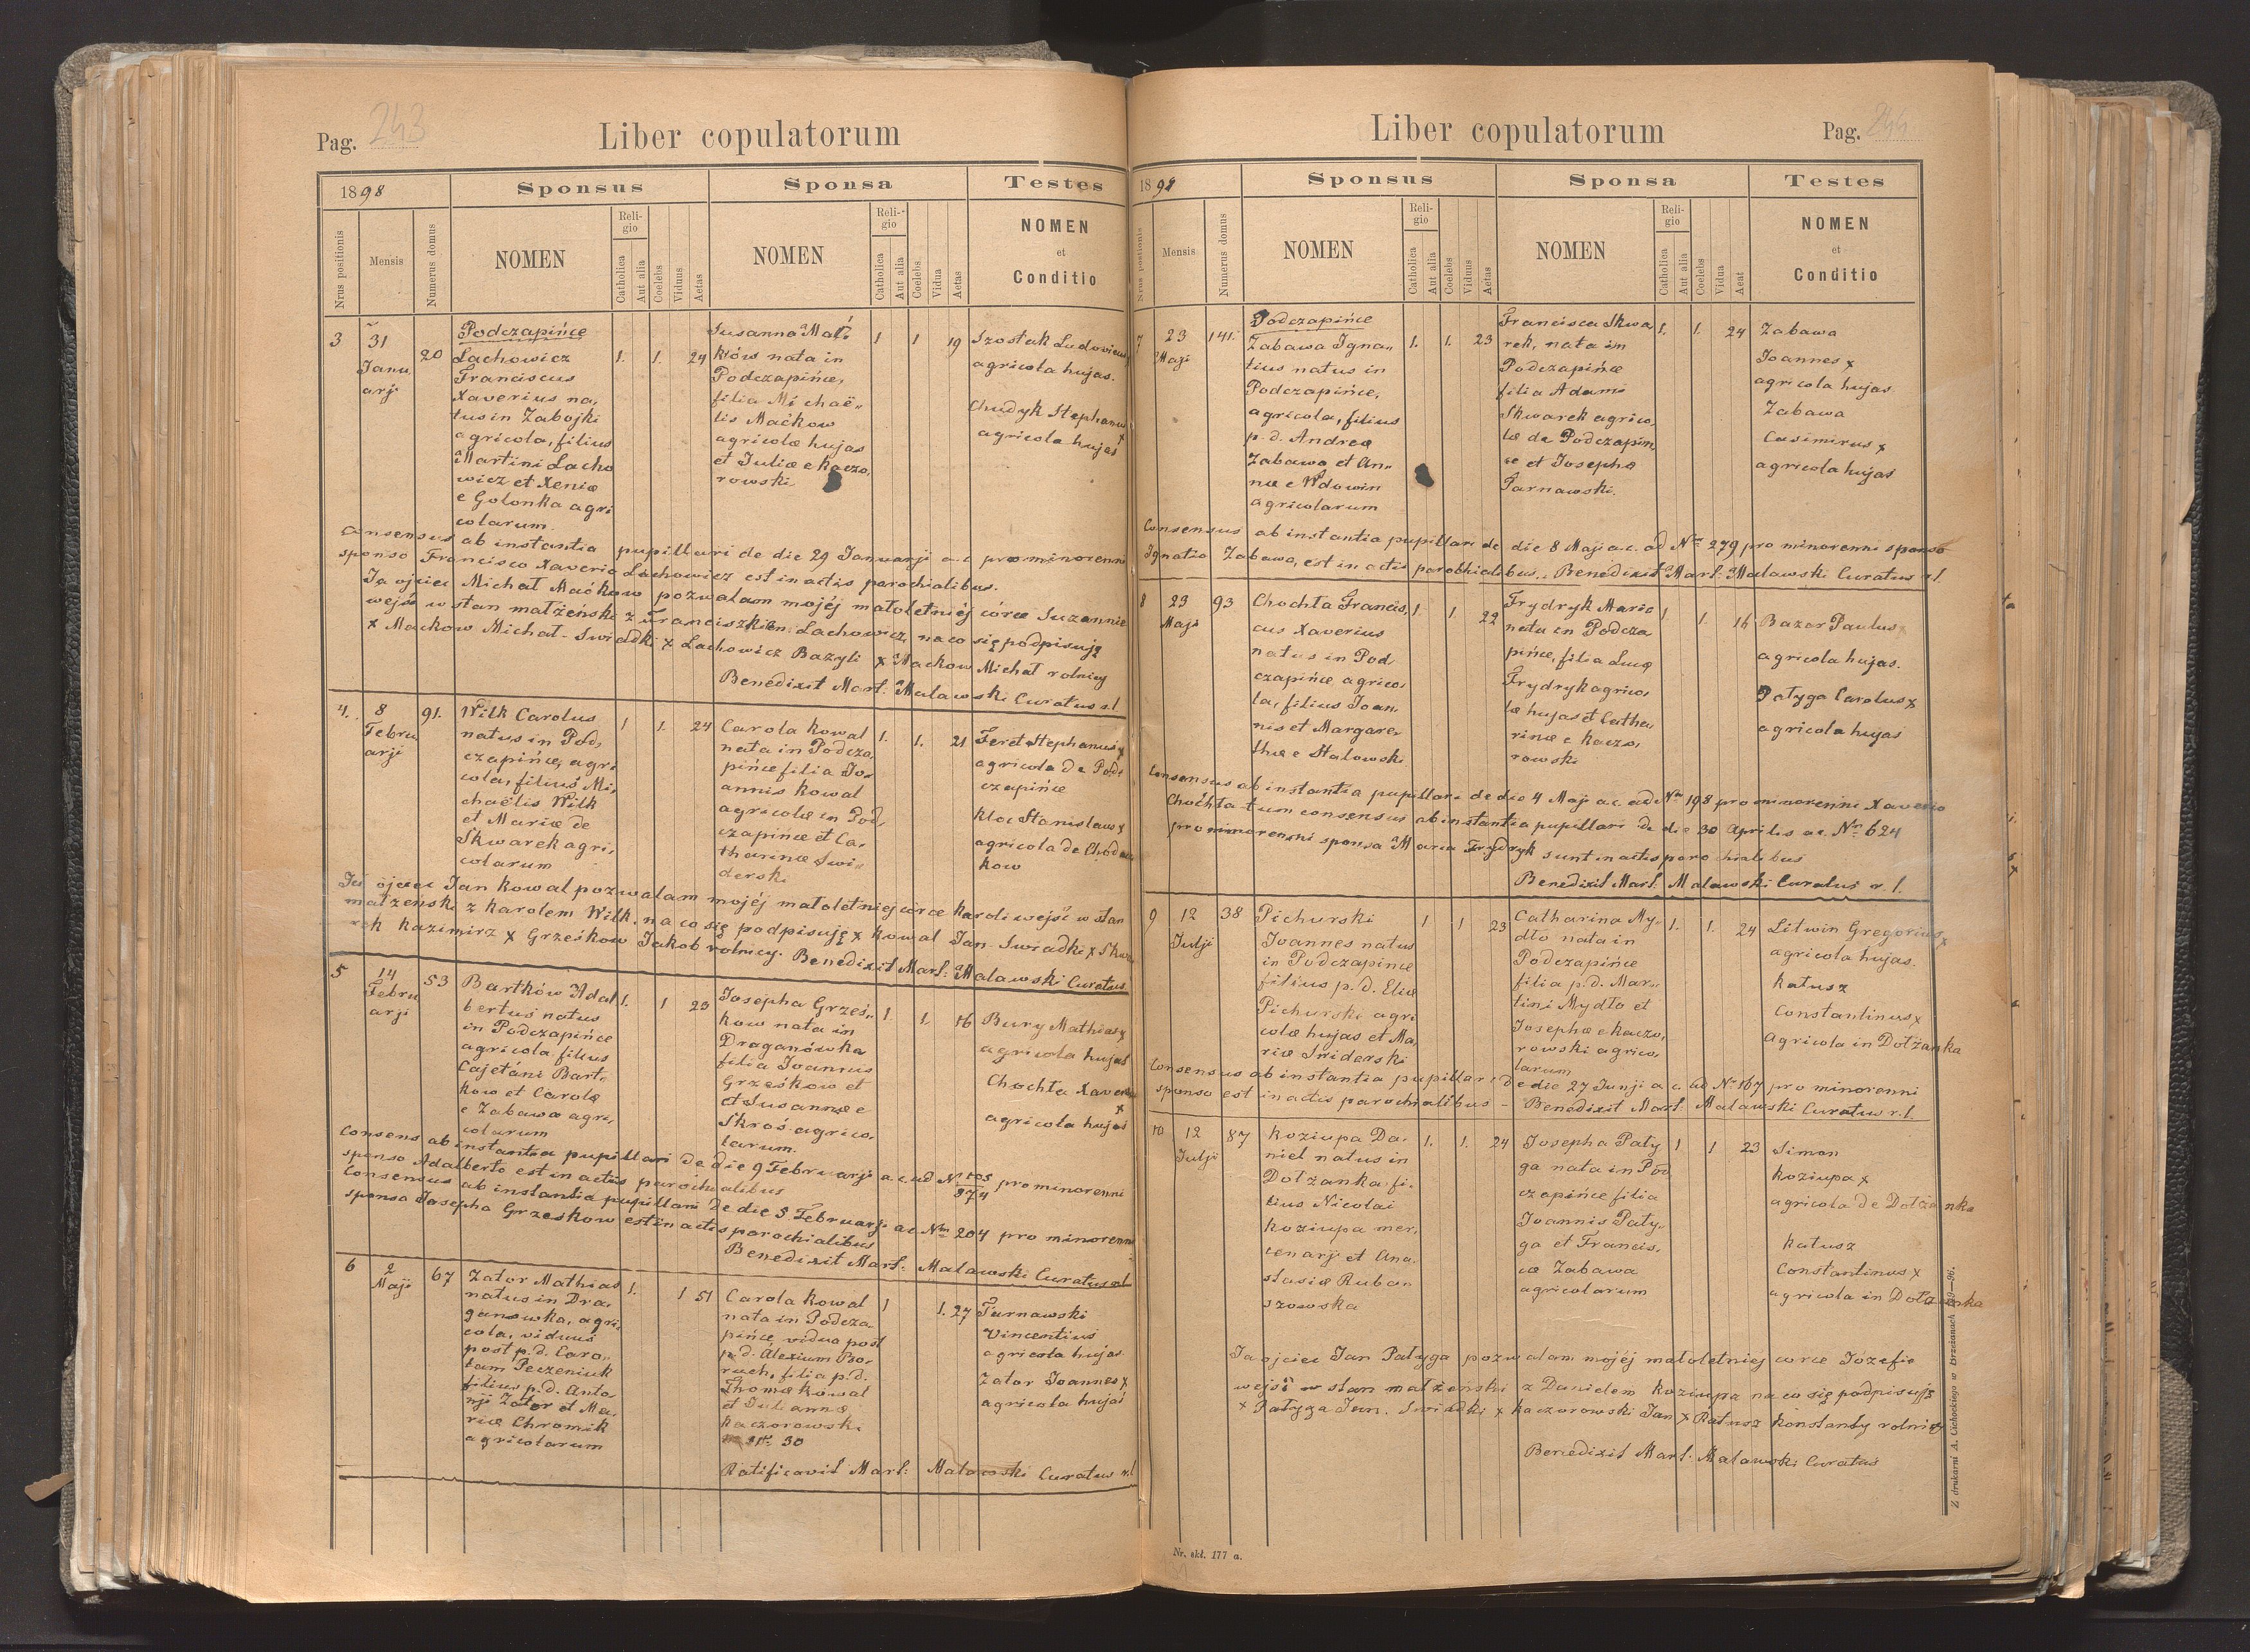 Pag. 243
Liber copulatorum
1898
Sponsus
Sponsa
Testes
Nrus positionis
Mensis
Numerus domus
NOMEN
Reli-
gio
Catholica
Aut alia
Coelebs
Viduus
Aetas
NOMEN
Reli-
gio
Catholica
Aut alia
Coelebs
Vidua
Aetas
NOMEN
et
Conditio
3
31
Janu
arji
20
Podczapińce
Lachowicz
Franciscus
Xaverius na,
tus in Zabojki
agricola, filius
Martini Lacho
wicz et Xeniæ
e Golonka agri
colarum.
1. 1. 24
Susanna Mać,
ków nata in
Podczapińce,
filia Michaë„
lis Maćkow
agricolæ hujas
et Juliæ e Kaczo,
rowski
1 1 19
Szostak Ludovicus
agricola hujas.
Chudyk Stephanus
x
agricola hujas
Consensus ab instantia pupillari de die 29 Januarji a.c pro minorenni
sponso Francisco Xaverio Lachowicz est in actis parochialibus.
Ja ojciec Michał Maćkow pozwalam mojéj małoletniéj córce Suzannie
wejść w stan małżeński z Franciszkiem Lachowicz, na co się podpisuję
x Mackow Michał - Swiadki x Lachowicz Bazyli x Mackow Michał rolnicy
Benedixit Mart: Malawski Curatus r.l.
4.
8
Febru
arji
91.
Wilk Carolus
natus in Pod,
czapińce, agri
cola, filius Mi,
chaëlis Wilk
et Mariæ de
Skwarek agri,
colarum
1 1. 24
Carola Kowal
nata in Podcza,
pińce filia Jo„
annis Kowal
agricolæ in Pod,
czapińce et Ca„
tharinæ Swi„
derski
1. 1. 21
Feret Stephanus x
agricola de Pod„
czapińce
Kloc Stanislaus x
agricola de Chodacz
kow
Ja ojciec Jan Kowal pozwalam mojéj małoletniej córce Karoli wejść w stan
małżeński z Karolem Wilk. na co się podpisuję x Kowal Jan. Swiadki x Skwa
rek Kazimirz x Grześkow Jakob rolnicy. Benedixit Mart: Malawski Curatus
5
14
Febru
arji
53
Bartków Adal
bertus natus
in Podczapińce
agricola filius
Cajetani Bart„
kow et Carolæ
e Zabawa agri,
colarum
1. 1 23
Josepha Grześ„
kow nata in
Draganówka
filia Joannis
Grześkow et
et Susannæ e
Skroś agrico,
larum.
1. 1. 16
Bury Mathias x
agricola hujas
Chochta Xaverius
x
agricola hujas
Consens ab instantia pupillari de die 9 Februarji a.c. ad N 105/374 pro minorenni
sponso Adalberto est in actis parochialibus
Consensus ab instantia pupillari de die 5 Februarji ac Nro 204 pro minorenni
sponsa Josepha Grzeskow est in actis parochialibus
Benedixit Mart: Malawski Curatus rl
6
2
Maji
67
Zator Mathias
natus in Dra„
ganowka, agri,
cola, viduus
post p. d. Caro„
lam Peczeniuk
filius p. d. Anto„
nji Zator et Ma,
riæ Chromik
agricolarum
1. 1 51
Carola Kowal
nata in Podcza„
pińce, vidua post
p. d. Alexium
filia p. d.
Thomæ Kowal
et Juliannæ
Kaczorowski
30
1 1. 27
Tarnawski
Vincentius
agricola hujas.
Zator Joannes x
agricola hujas
Ratificavit Mart: Malawski Curatus rl
Liber copulatorum
Pag. 244
1898
Sponsus
Sponsa
Testes
Nrus positionis
Mensis
Numerus domus
NOMEN
Reli-
gio
Catholica
Aut alia
Coelebs
Viduus
Aetas
NOMEN
Reli-
gio
Catholica
Aut alia
Coelebs
Vidua
Aeat
NOMEN
et
Conditio
7
23
Maji
141.
Podczapińce
Zabawa Igna„
tius natus in
Podczapińce,
agricola, filius
p. d. Andreæ
Zabawa et An„
næ e Wdowin
agricolarum
1. 1. 23
Francisca Skwa
rek, nata in
Podczapińce
filia Adami
Skwarek agrico,
læ de Podczapin,
ce et Josephæ
Tarnawski.
1. 1. 24
Zabawa
Joannes x
agricola hujas
Zabawa
Casimirus x
agricola hujas
Consensus ab instantia pupillari de die 8 Maji a.c. ad Nrm 279 pro minorenni sponso
Ignatio Zabawa, est in actis parochialibus. Benedixit Mart: Malawski Curatus r.l.
8
23
Maji
93
Chochta Francis,
cus Xaverius
natus in Pod
czapińce agrico,
la, filius Joan,
nis et Margare„
thæ e Stalowski
1. 1 22
Frydryk Maria
nata in Podcza
pińce, filia Lucæ
Frydryk agrico,
læ hujas et Catha,
rinæ e Kaczo,
rowski
1 1. 16
Bazar Paulus x
agricola hujas.
Patyga Carolus x
agricola hujas
Consensus ab instantia pupillari de die 4 Maji a.c. ad Nrm 198 pro minorenni Xaverio
Chochta tum consensus ab instantia pupillari de die 30 Aprilis a.c. Nr. 624
pro minorenni sponsa Maria Frydryk sunt in actis parochialibus
Benedixit Mart: Malawski Curatus r.l.
9
12
Julji
38
Pichurski
Joannes natus
in Podczapince
filius p. d. Eliæ
Pichurski agri
colæ hujas et Ma,
riæ Sriderski
1 1 23
Catharina My„
dło nata in
Podczapińce
filia p. d. Mar„
tini Mydło et
Josephæ e Kaczo,
rowski agrico,
larum
1. 1. 24
Litwin Gregorius x
agricola hujas.
Katusz
Constantinus x
Agricola in Dołżanka
Consensus ab instantia pupillari de die 27 Junji a c. ad Nr 167 pro minorenni
sponso est in actis parochialibus - Benedixit Mart: Malawski Curatus r.l.
10
12
Julji
87
Koziupa Da„
niel natus in
Dołżanka fi„
lius Nicolai
Koziupa mer,
cenarji et Ana,
stasiæ Ruban
szowska
1. 1. 24
Josepha Paty
ga nata in Pod
czapińce filia
Joannis Paty„
ga et Francis,
cæ Zabawa
agricolarum
1 1 23
Simon
Koziupa x
agricola de Dołżanka
Katusz
Constantinus x
agricola in Dołżanka
Ja ojciec Jan Patyga pozwalam mojéj małoletniej corce Józefie
wejść w stan małżeński z Danielem Koziupa na co się podpisuję
x Patyga Jan. Swiadki x Kaczorowski Jan x Ratusz Konstanty rolnicy
Benedixit Mart: Malawski Curatus
Nr. skł. 177 a.
Z drukarni A. Cichockiego w Brzeżanach 29—96.